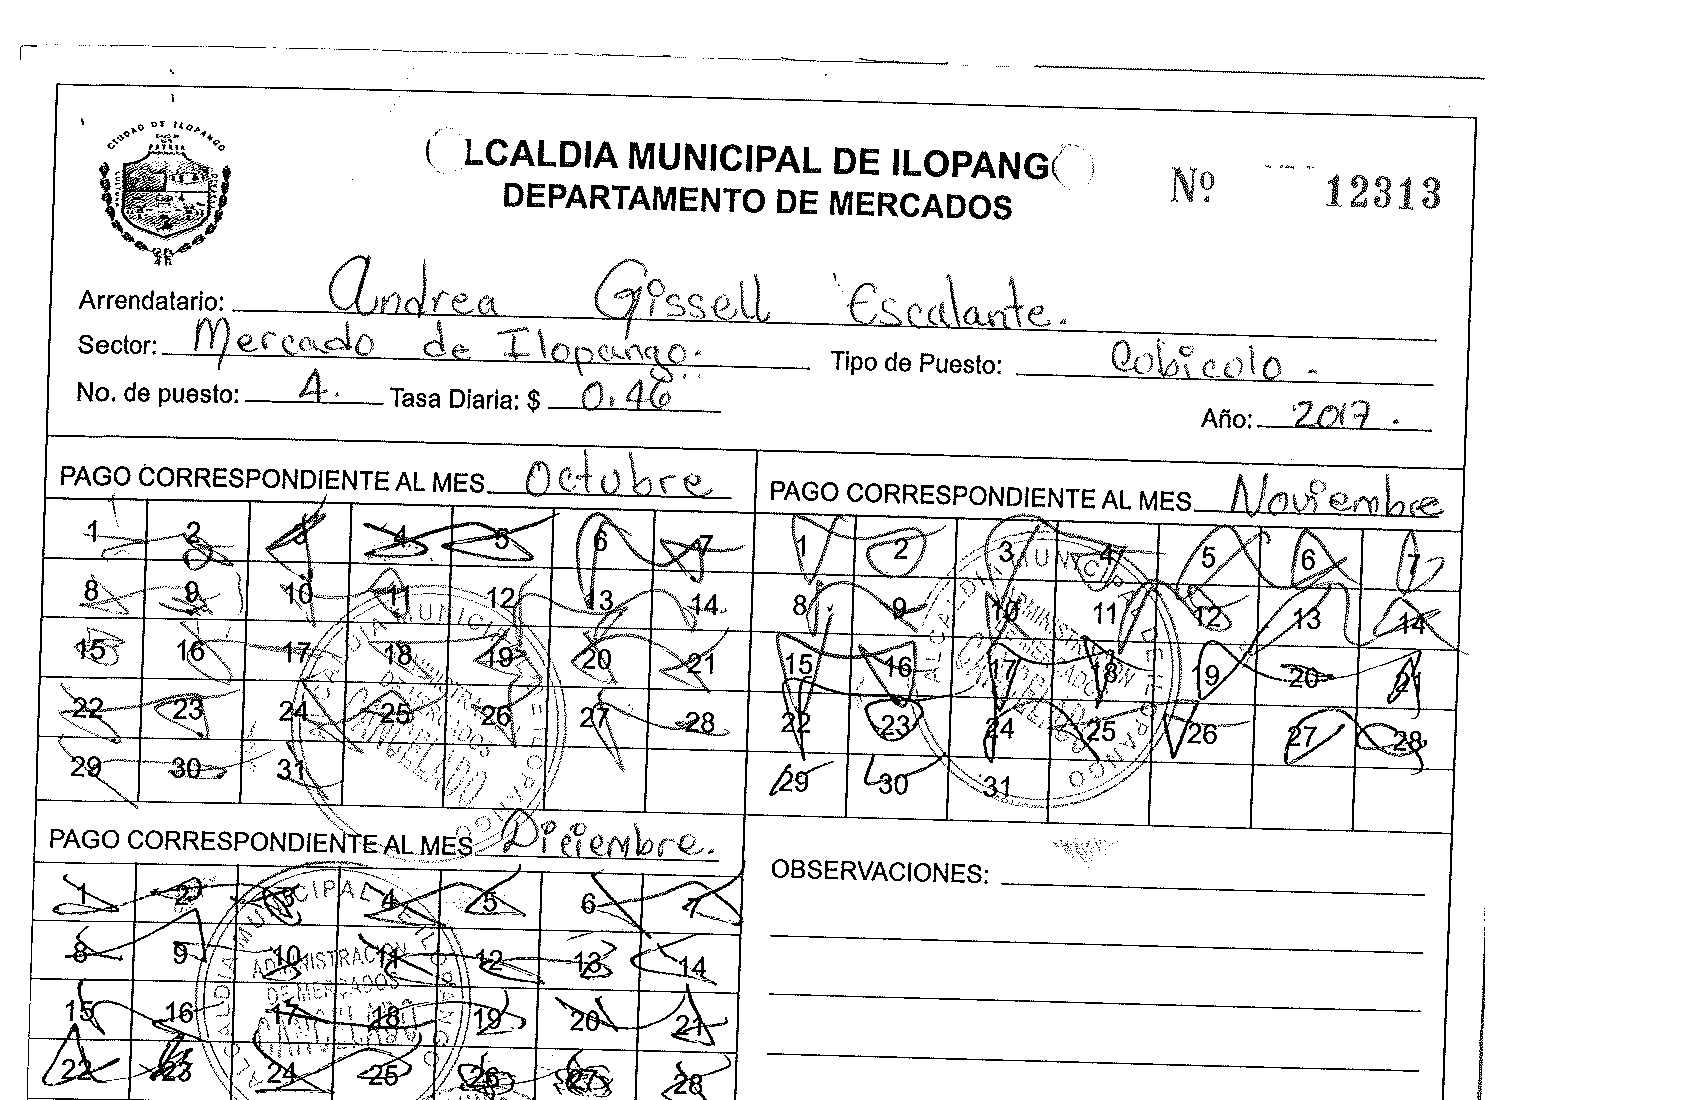 CIUDAD DE ILOPANGO
PATRIA
LCALDIA MUNICIPAL DE ILOPANG
DEPARTAMENTO DE MERCADOS
Nº 12313
Arrendatario: Andrea Gissell Escalante.
Sector: Mercado de Ilopango. Tipo de Puesto: Cubicolo.
No. de puesto: 4. Tasa Diaria: $ 0.46
Año: 2017.
PAGO CORRESPONDIENTE AL MES Octubre
1 2 3 4 5 6 7
8 9 10 11 12 13 14
15 16 17 18 19 20 21
22 23 24 25 26 27 28
29 30 31
PAGO CORRESPONDIENTE AL MES Noviembre
1 2 3 4 5 6 7
8 9 10 11 12 13 14
15 16 17 18 19 20 21
22 23 24 25 26 27 28
29 30 31
PAGO CORRESPONDIENTE AL MES Diciembre.
1 2 3 4 5 6 7
8 9 10 11 12 13 14
15 16 17 18 19 20 21
22 23 24 25 26 27 28
ADMINISTRACION
DE MERCADOS
CANCELADO
OBSERVACIONES: